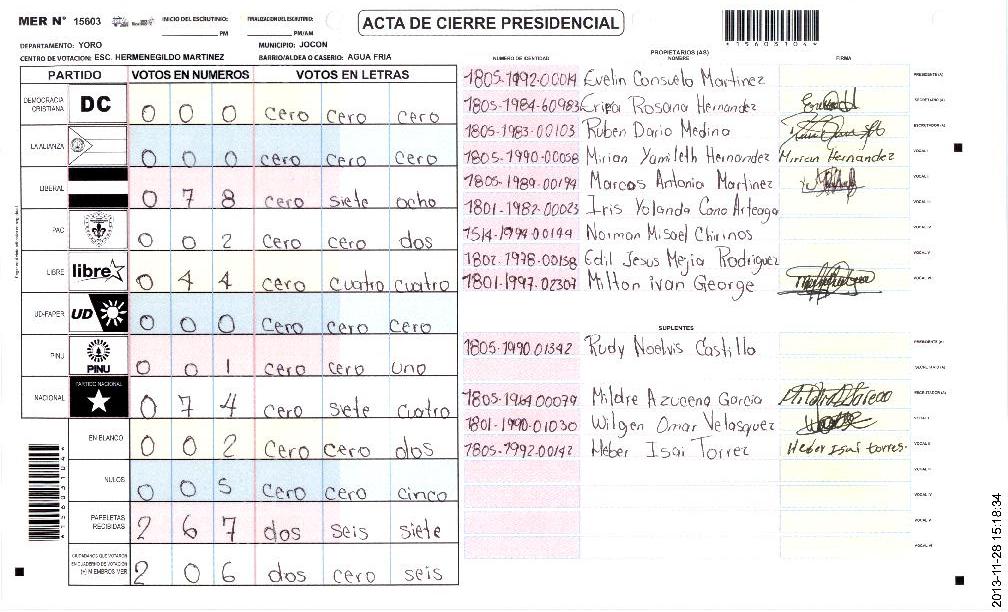 MER N° 15603 INICIO DEL ESCRUTINIO: PM FINALIZACION DEL ESCRUTINIO: PM/AM
ACTA DE CIERRE PRESIDENCIAL
*15603104*
DEPARTAMENTO: YORO MUNICIPIO: JOCON
CENTRO DE VOTACION: ESC. HERMENEGILDO MARTINEZ BARRIO/ALDEA O CASERIO: AGUA FRIA
PARTIDO VOTOS EN NUMEROS VOTOS EN LETRAS
DEMOCRACIA CRISTIANA DC 0 0 0 cero cero cero
LA ALIANZA 0 0 0 cero cero cero
LIBERAL 0 7 8 cero siete ocho
PAC 0 0 2 cero cero dos
LIBRE libre 0 4 4 cero cuatro cuatro
UD-FAPER UD 0 0 0 cero cero cero
PINU PINU 0 0 1 cero cero uno
NACIONAL PARTIDO NACIONAL 0 7 4 cero siete cuatro
EN BLANCO 0 0 2 cero cero dos
NULOS 0 0 5 cero cero cinco
PAPELETAS RECIBIDAS 2 6 7 dos seis siete
CIUDADANOS QUE VOTARON EN CUADERNO DE VOTACION (+) MIEMBROS MER 2 0 6 dos cero seis
PROPIETARIOS (AS)
NUMERO DE IDENTIDAD NOMBRE FIRMA
1805-1992-00014 Evelin Consuelo Martinez PRESIDENTE(A)
1805-1984-60983 Erica Rosana Hernandez SECRETARIO(A)
1805-1983-00103 Ruben Dario Medina ESCRUTADOR(A)
1805-1990-00058 Mirian Yamileth Hernandez Mirian Hernandez VOCAL I
1805-1989-00194 Marcos Antonia Martinez VOCAL II
1801-1982-00023 Iris Yolanda Cano Arteaga VOCAL III
1514-1994-00194 Norman Misael Chirinos VOCAL IV
1807-1978-00158 Edil Jesus Mejia Rodriguez VOCAL V
1801-1997-02307 Milton ivan George VOCAL VI
SUPLENTES
1805-1990-01342 Rudy Noelvis Castillo PRESIDENTE (A)
SECRETARIO (A)
1805-1964-00079 Mildre Azucena Garcia ESCRUTADOR (A)
1801-1990-01030 Wilgen Omar Velasquez VOCAL I
1805-1992-00142 Heber Isai Torrez Heber Isai torres. VOCAL II
VOCAL III
VOCAL IV
VOCAL V
VOCAL VI
2013-11-28 15:18:34